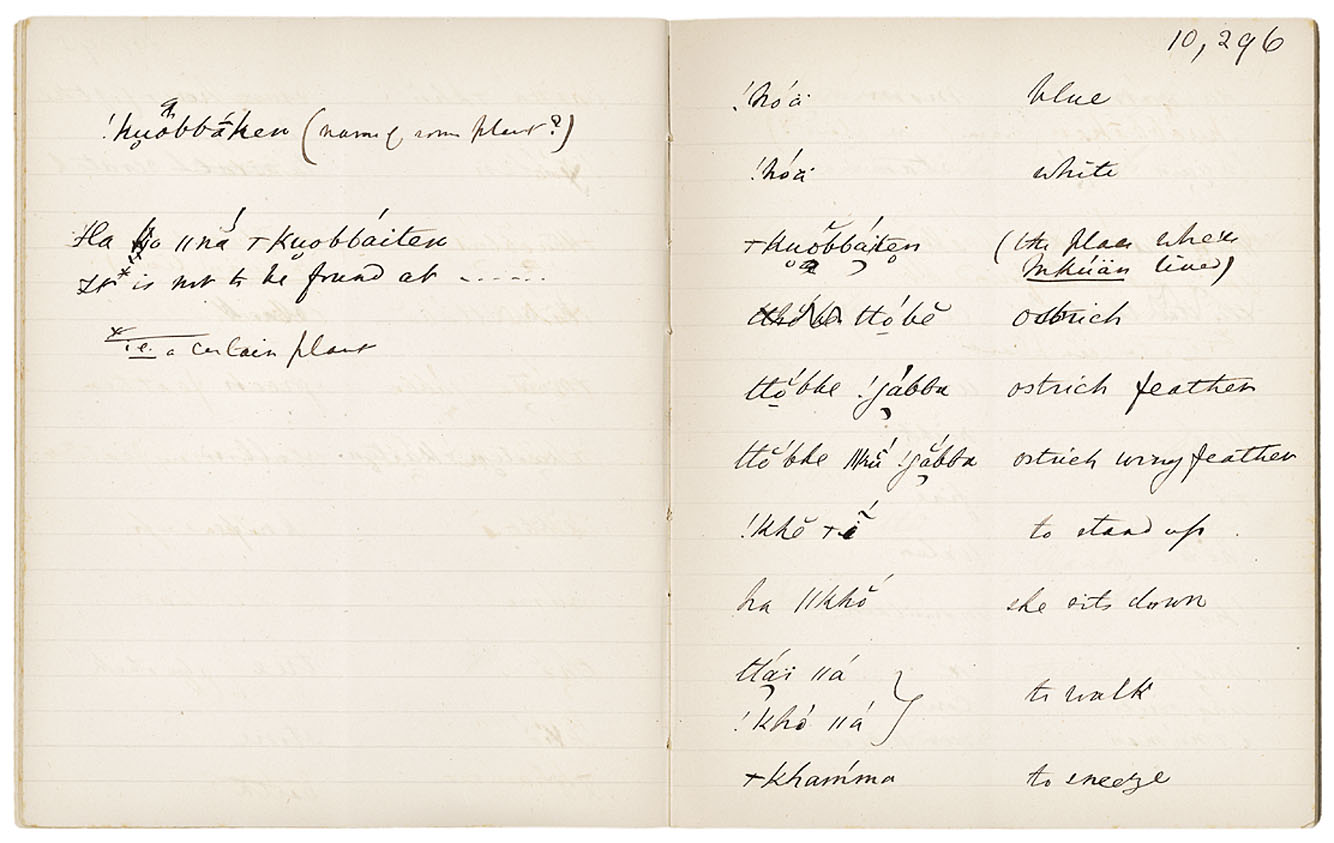 !kuobbáken (name of some plant?)
Ha ǁná ǂkuobbáiten
It* is not to be found at ------
* i.e. a certain plant
10,296
!hó́ä blue
!hó́ä white
ǂkuŏbbáiten (the place where
Mkúän lived)
ttóbĕ ostrich
ttŏ́bbe !gábba ostrich feather
ttŏ́bbe !gábba ostrich wing feather
!khĕ ǂĭ́ to stand up.
ha ǁkhŏ́ she sits down
ttái ǁá
to walk
!khó ǁá
ǂkhaḿma to sneeze